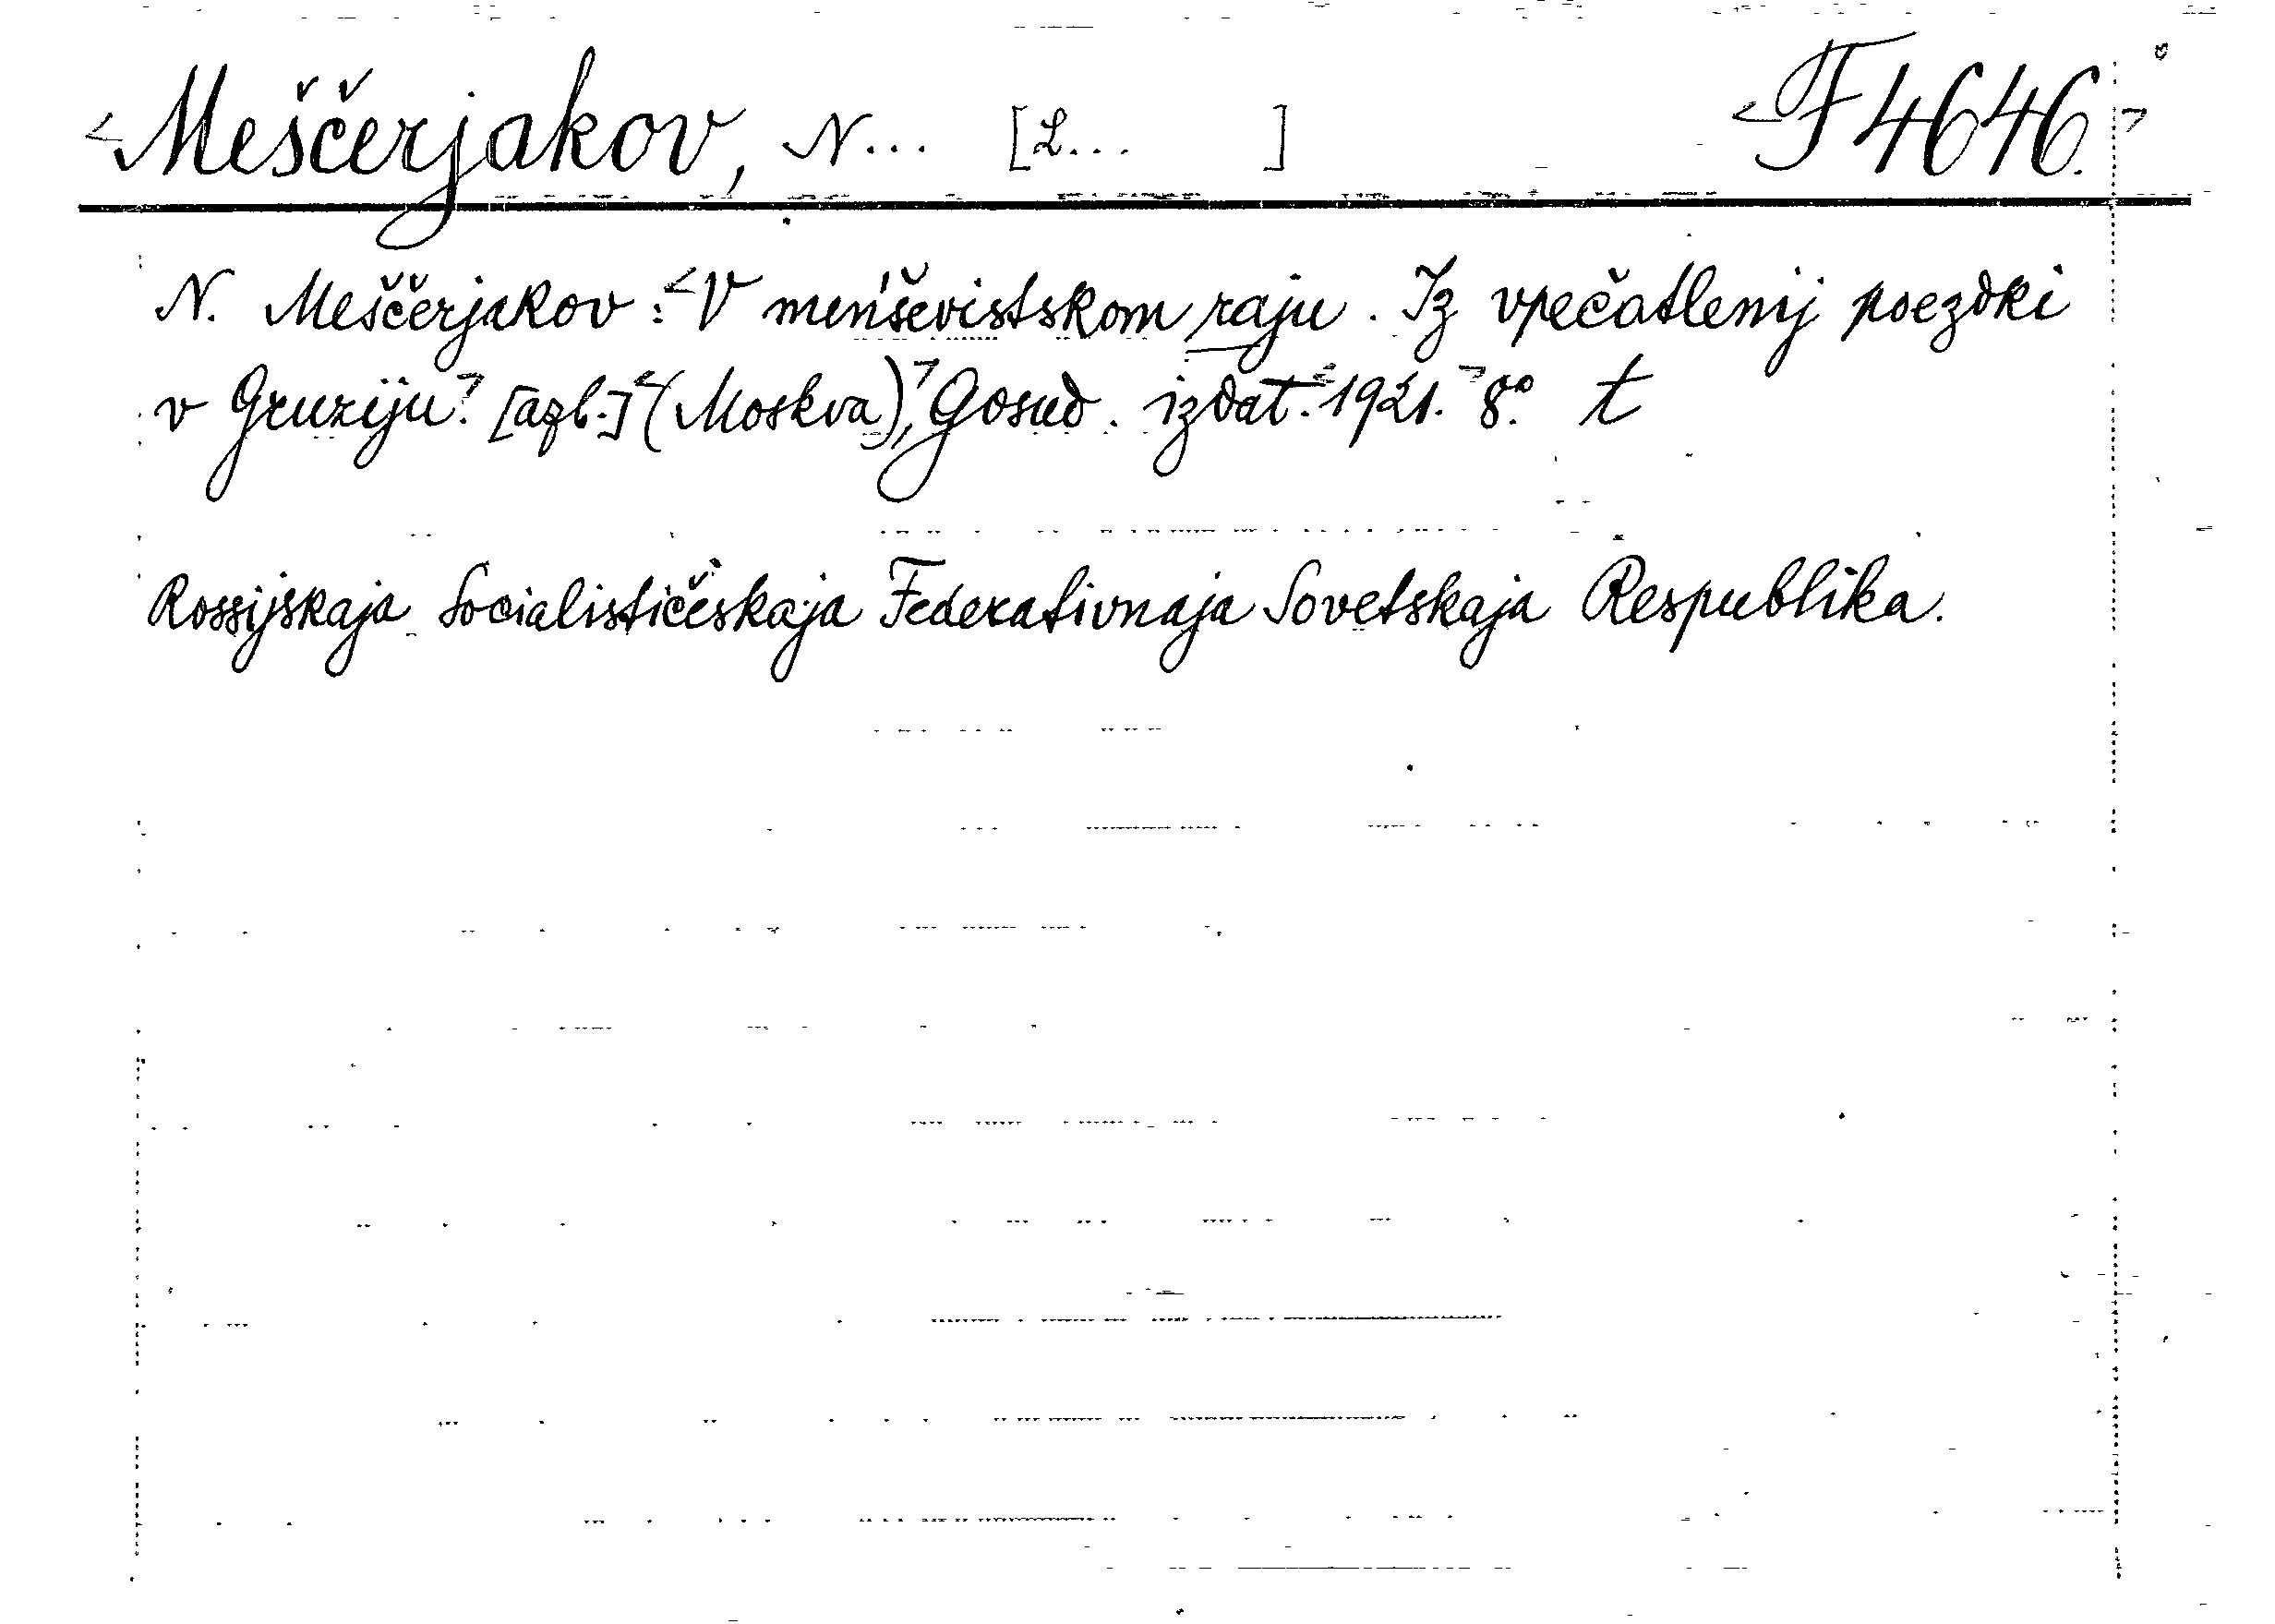 <Meščerjakov, N... [L... ] <F 4646.>
N. Meščerjakov: <V men'ševistskom raju. Iz vpečatlenij poezdki
v Gruziju.> [azb.] <(Moskva),> Gosud. izdat. <1921.> 8°. t
Rossijskaja Socialističeskaja Federativnaja Sovetskaja Respublika.